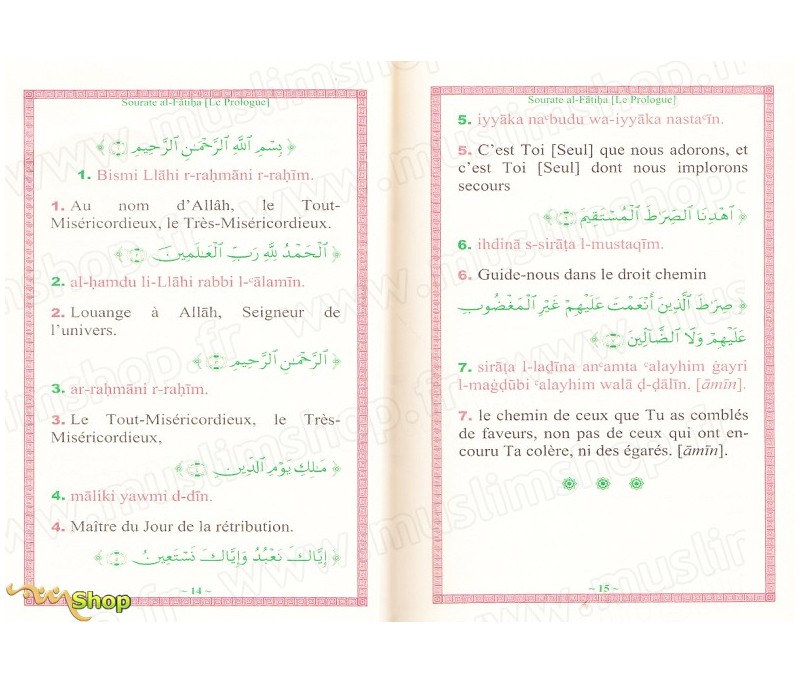 Sourate al-Fātiḥa [Le Prologue]
﴿ بِسْمِ ٱللَّهِ ٱلرَّحْمَٰنِ ٱلرَّحِيمِ ﴾
1. Bismi Llāhi r-raḥmāni r-raḥīm.
1. Au nom d’Allâh, le Tout-
Miséricordieux, le Très-Miséricordieux.
﴿ ٱلْحَمْدُ لِلَّهِ رَبِّ ٱلْعَٰلَمِينَ ﴾
2. al-ḥamdu li-Llāhi rabbi l-ʿālamīn.
2. Louange à Allāh, Seigneur de
l’univers.
﴿ ٱلرَّحْمَٰنِ ٱلرَّحِيمِ ﴾
3. ar-raḥmāni r-raḥīm.
3. Le Tout-Miséricordieux, le Très-
Miséricordieux,
﴿ مَٰلِكِ يَوْمِ ٱلدِّينِ ﴾
4. māliki yawmi d-dīn.
4. Maître du Jour de la rétribution.
﴿ إِيَّاكَ نَعْبُدُ وَإِيَّاكَ نَسْتَعِينُ ﴾
~ 14 ~
Sourate al-Fātiḥa [Le Prologue]
5. iyyāka naʿbudu wa-iyyāka nastaʿīn.
5. C’est Toi [Seul] que nous adorons, et
c’est Toi [Seul] dont nous implorons
secours
﴿ ٱهْدِنَا ٱلصِّرَٰطَ ٱلْمُسْتَقِيمَ ﴾
6. ihdinā s-sirāṭa l-mustaqīm.
6. Guide-nous dans le droit chemin
﴿ صِرَٰطَ ٱلَّذِينَ أَنْعَمْتَ عَلَيْهِمْ غَيْرِ ٱلْمَغْضُوبِ
عَلَيْهِمْ وَلَا ٱلضَّآلِّينَ ﴾
7. sirāṭa l-laḏīna anʿamta ʿalayhim ġayri
l-maġḍūbi ʿalayhim walā ḍ-ḍālīn. [āmīn].
7. le chemin de ceux que Tu as comblés
de faveurs, non pas de ceux qui ont en-
couru Ta colère, ni des égarés. [āmīn].
~ 15 ~
Shop
www.muslimshop.fr